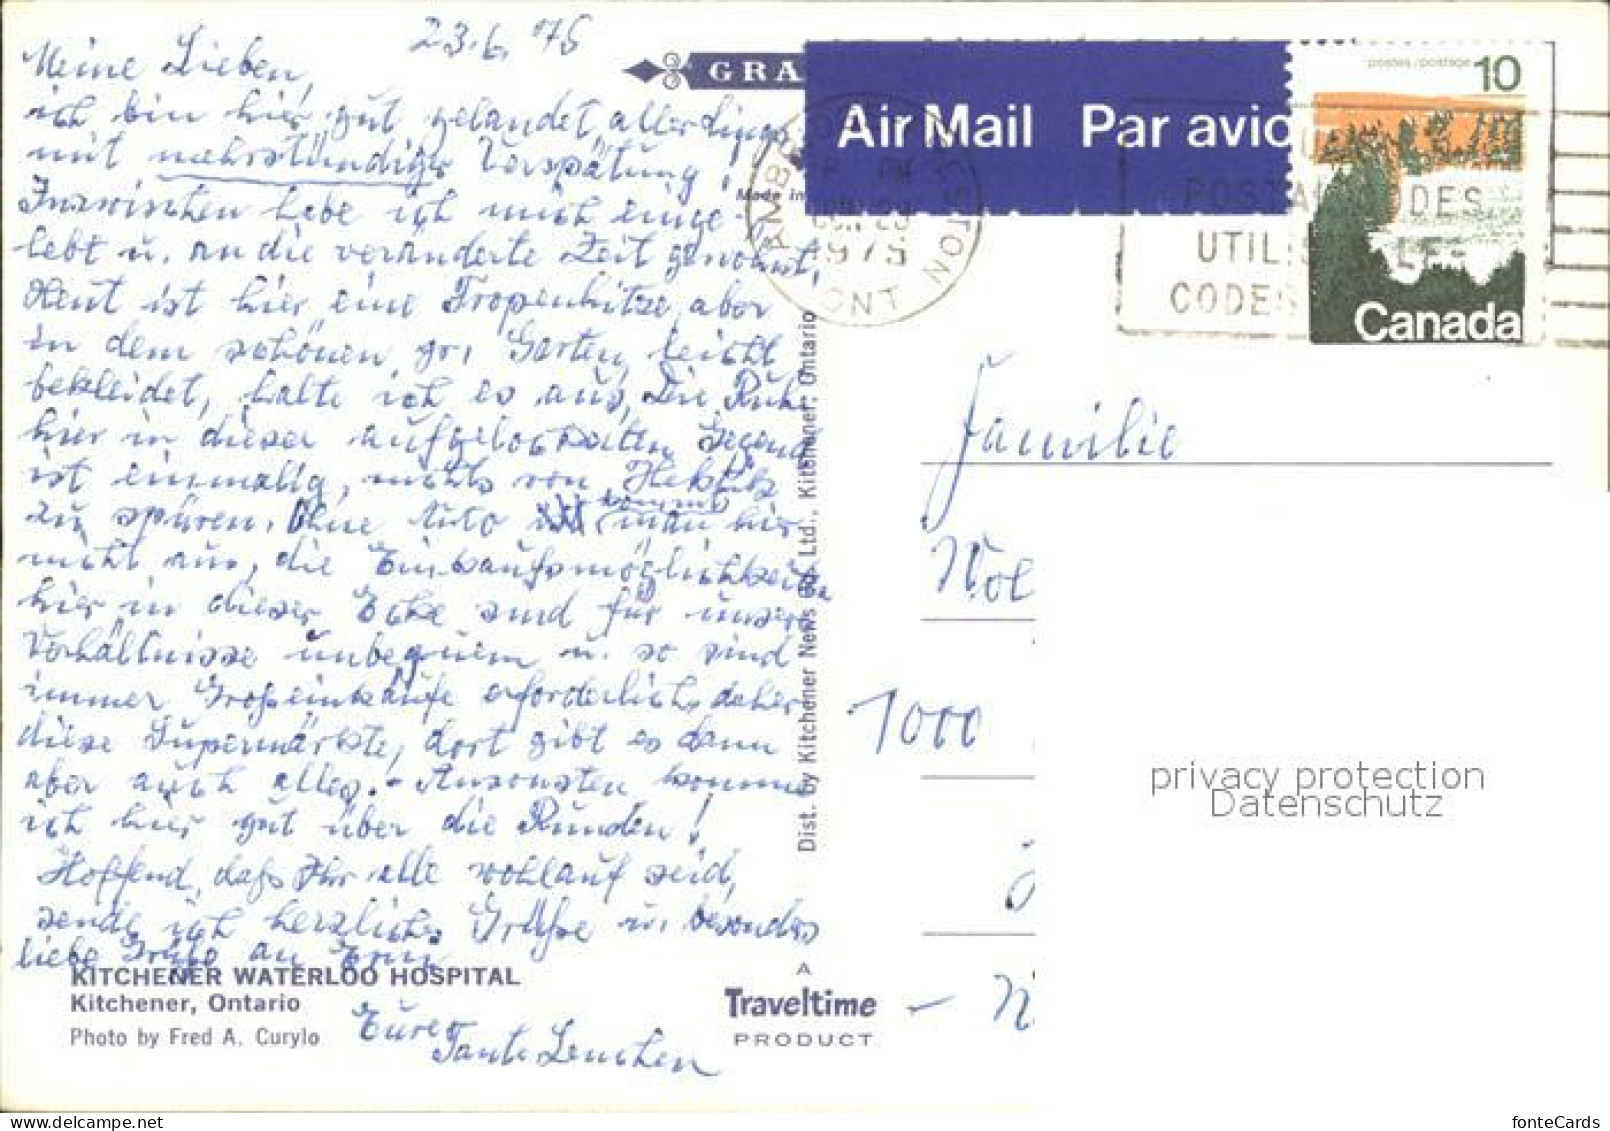 23.6.75
Meine Lieben,
ich bin hier gut gelandet, allerdings
mit mehrstündiger Verspätung!
Inzwischen habe ich mich einge-
lebt u. an die veränderte Zeit gewöhnt,
Heut ist hier eine Tropenhitze, aber
in dem schönen, gr. Garten, leicht
bekleidet, halte ich es aus, Die Ruhe
hier in dieser aufgelockerten Gegend
ist einmalig, nichts von Hektik
zu spüren. Ohne Auto kommt man hier
nicht aus, die Einkaufsmöglichkeiten
hier in dieser Ecke sind für unsere
Verhältnisse unbequem u. so sind
immer Großeinkäufe erforderlich, daher
diese Supermärkte, dort gibt es dann
aber auch alles. - Ansonsten komme
ich hier gut über die Runden!
Hoffend, daß Ihr alle wohlauf seid,
sende ich herzliche Grüße u. besonders
liebe Grüße an
Eure
Tante Lenchen
KITCHENER WATERLOO HOSPITAL
Kitchener, Ontario
Photo by Fred A. Curylo
GRA
Made in
Dist. by Kitchener News Co. Ltd., Kitchener, Ontario
A
Traveltime
PRODUCT
Air Mail Par avion
postes/postage 10
Canada
PM
1975
ONT
POSTAL CODES
UTILISEZ LES
CODES
Familie
1000
privacy protection
Datenschutz
fonteCards